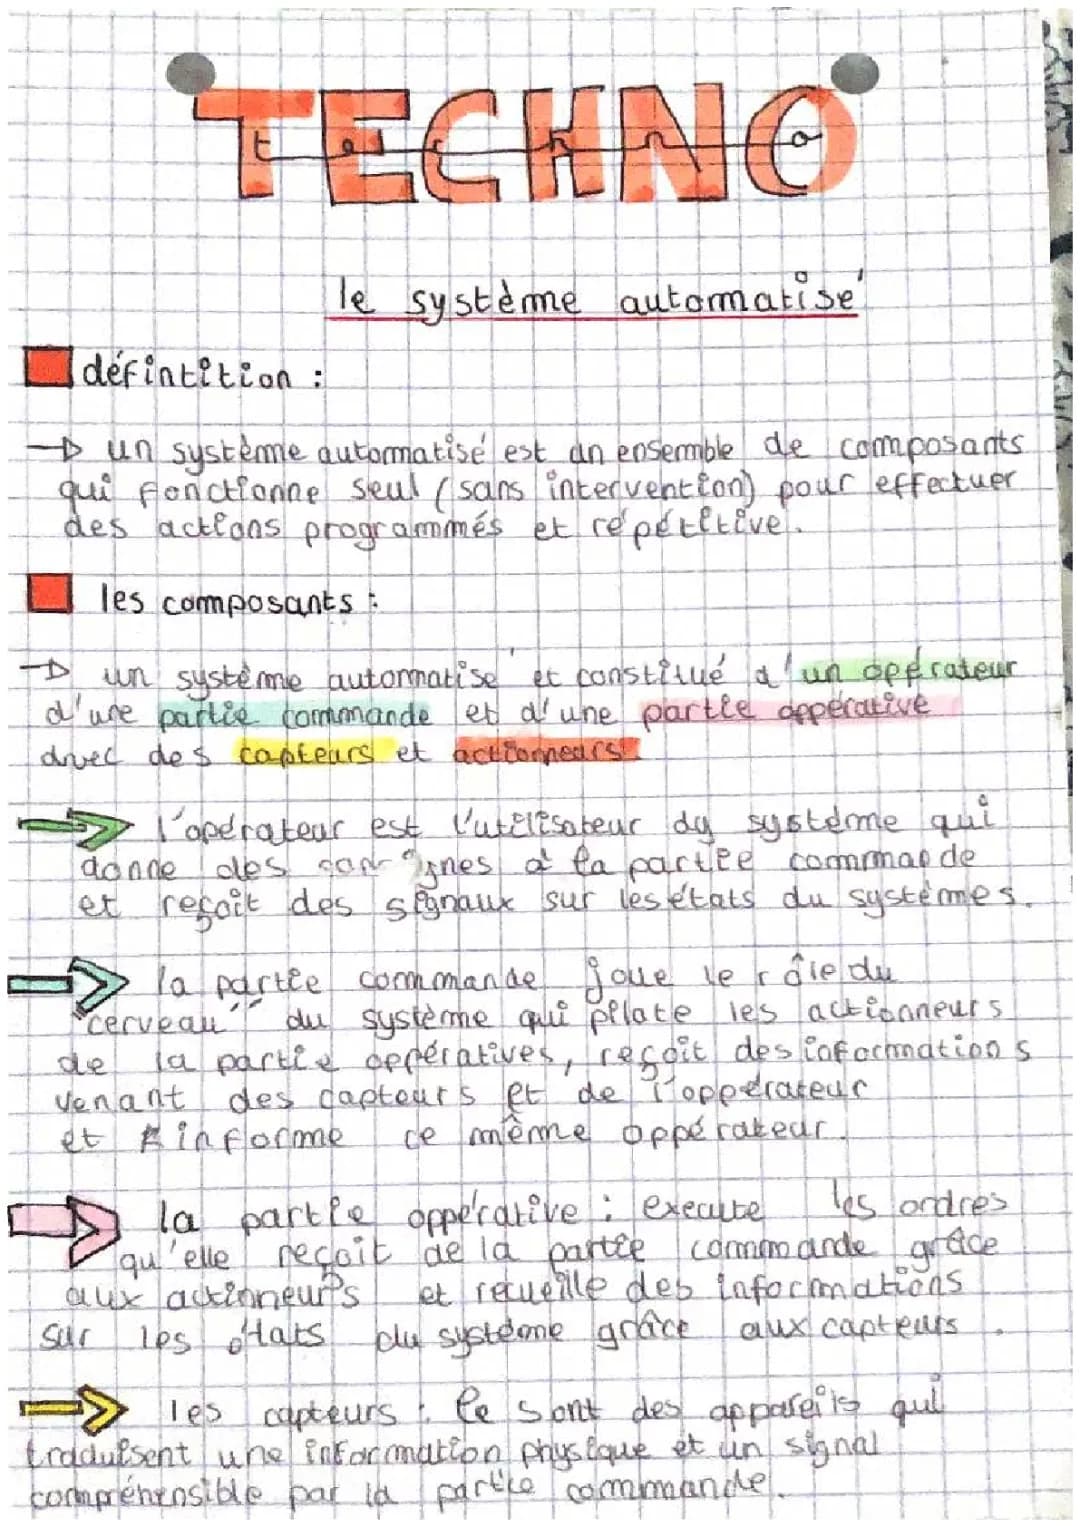 TECHNO
techno
le système automatisé
défintition :
un système autommatisé est un ensemble de composants
qui fonctionne seul (sans intervention) pour effectuer
des actions programmés et répétitive.
les composants :
un système autommatisé et constitué d'un oppérateur
d'une partie commande et d'une partie oppérative
avec des capteurs et actionneurs.
l'opérateur est l'utilisateur du système qui
donne des consignes à la partie commande
et reçoit des signaux sur les états du systèmes.
la partie commande joue le rôle du
"cerveau" du système qui pilote les actionneurs
de la partie oppératives, reçoit des informations
venant des capteurs et de l'oppérateur
et informe ce même oppérateur.
la partie oppérative : execute les ordres
qu'elle reçoit de la partie commande grâce
aux actionneurs et recueille des informations
sur les états du système grâce aux capteurs.
les capteurs : Ce sont des appareils qui
traduisent une information physique et un signal
compréhensible par la partie commande.